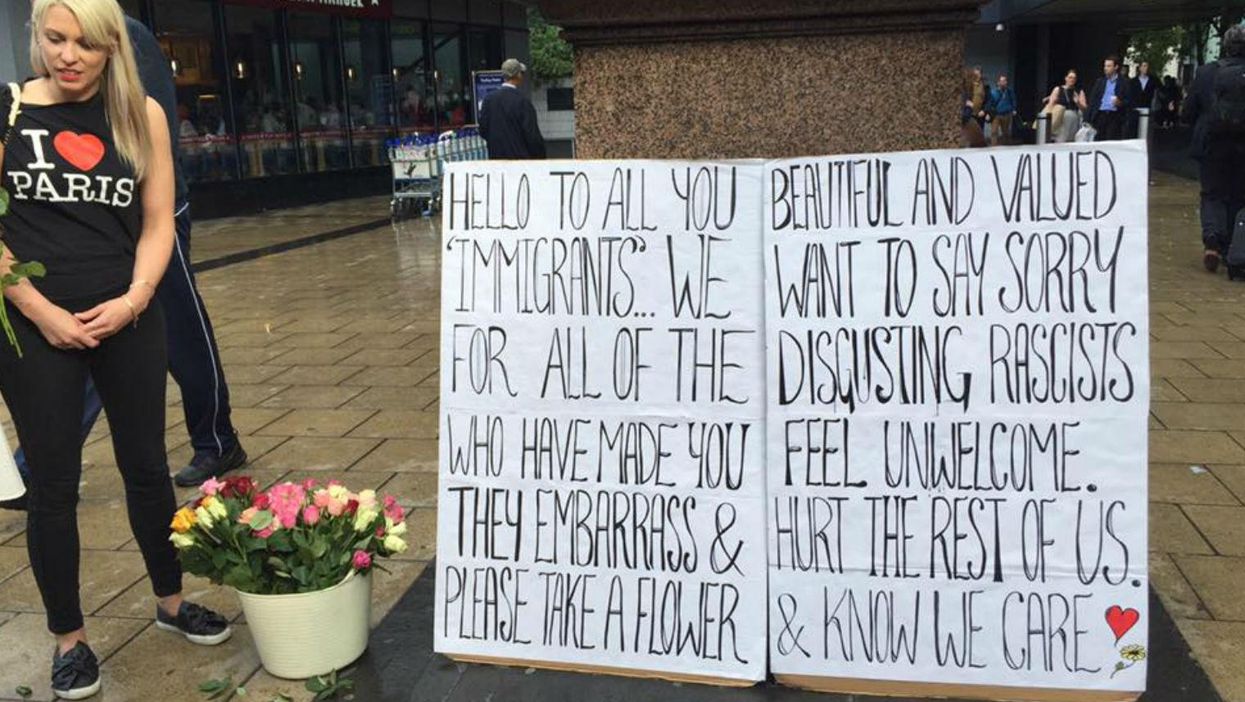 I ♥
PARIS
HELLO TO ALL YOU BEAUTIFUL AND VALUED
"IMMIGRANTS"... WE WANT TO SAY SORRY
FOR ALL OF THE DISGUSTING RASCISTS
WHO HAVE MADE YOU FEEL UNWELCOME.
THEY EMBARRASS & HURT THE REST OF US.
PLEASE TAKE A FLOWER & KNOW WE CARE